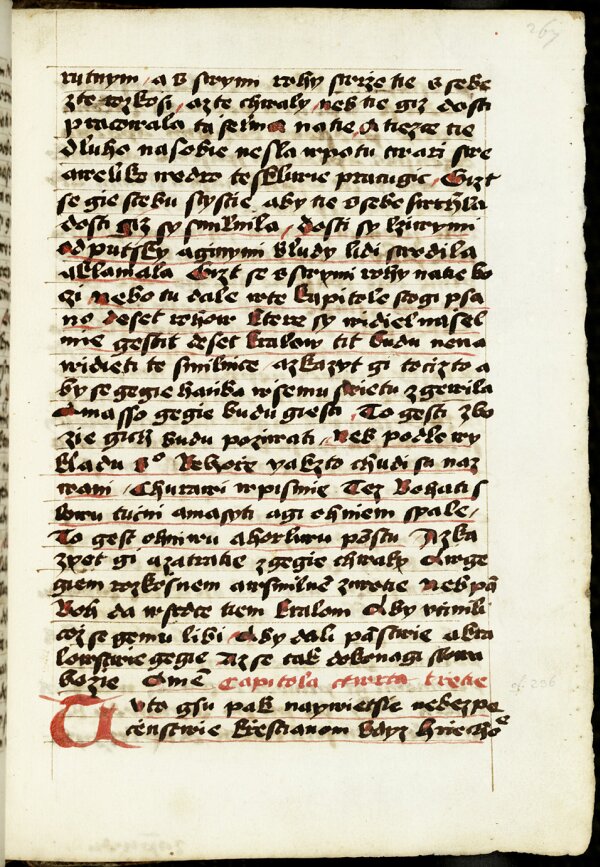 267
rutnym a v swymi rohy strze tie o sebe
z te rozkosi, az te chwaly neb tie giz dosti
pracowala ta selma na tie, A tiezce tie
dluho na sobie nesla w potu twari swe
a weliko wedro tesklivie pracugic, Gizt
se gie steku stystie, aby tie o sebe
dosti giz sy smilnila, dosti sy lziwymi
odpustky a ginymi bludy lidi swodila
a klamala Gizt se o swymi rohy na tie bo
zi, nebo tu dale w te kapitole stogi psa
no deset rohow ktere sy widiel na sel
mie gestit deset kralow tit budu nena
widieti te smilnice, a zkazyt gi to cizto a
by se gegie hanba wsemu swietu zgewila
A masso gegie budu giesti, To gest zbo
zie gich budu pozirati, Neb podle wy
kladu yakzto chudi su naz
wani Chwrawi w pismie Tez Bohati s
lowu tucni a massyti a gi ohniem spale,
To gest ohniwu a horliwu pomstu A zka
zyet gi a zatratie z gegie chwaly A w ge
giem rozkosnem a w smilnem zywotie Neb pan
Boh da w srdce tiem kralom Aby vcinili
coz se gemu libi Aby dali panstwie a kra
lowstwie gegie Az se tak dokonagi slowa
bozie Ame Capitola ctwrta tretie
Tuto gsu pak naywietsie nebezpe
censtwie krestianom kdyz hriecho